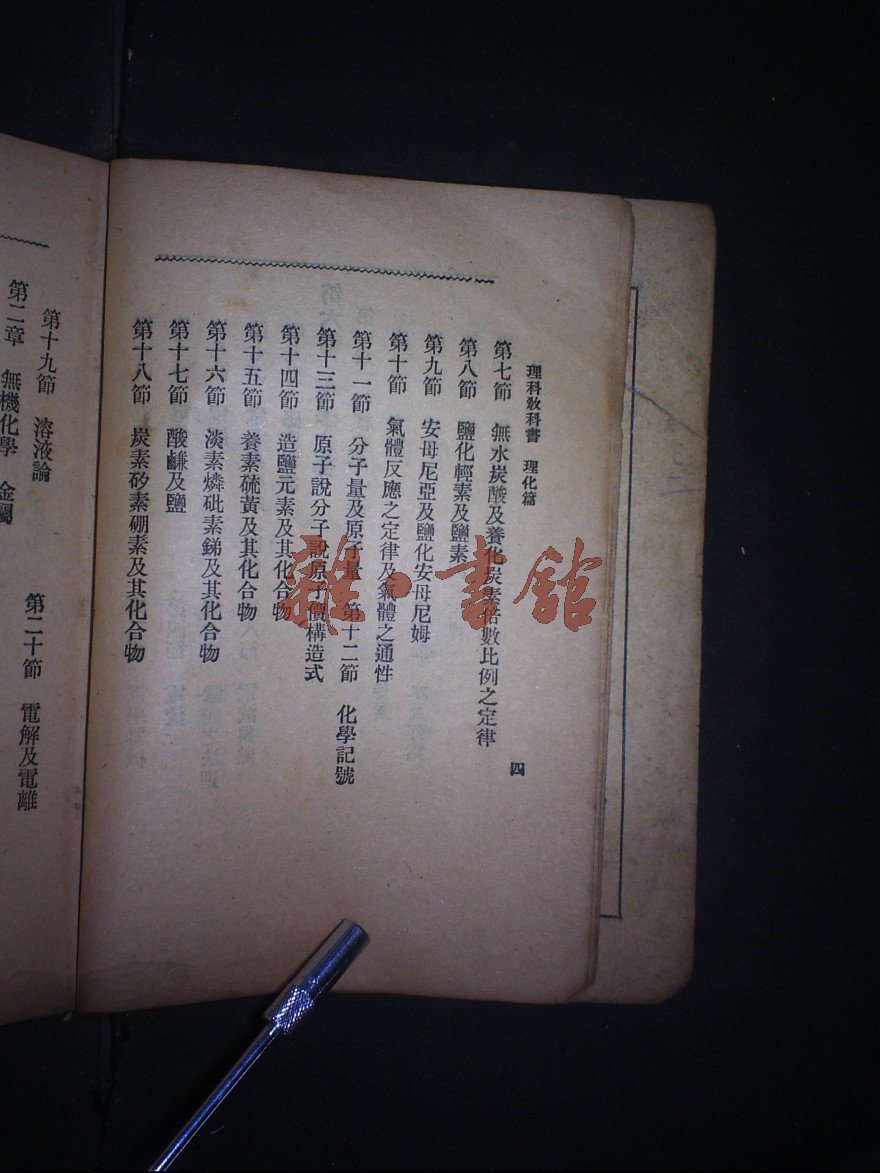 理科敎科書　理化篇
四
第七節　無水炭酸及養化炭素倍數比例之定律
第八節　鹽化輕素及鹽素
第九節　安母尼亞及鹽化安母尼姆
第十節　氣體反應之定律及氣體之通性
第十一節　分子量及原子量　第十二節　化學記號
第十三節　原子說分子說原子價構造式
第十四節　造鹽元素及其化合物
第十五節　養素硫黃及其化合物
第十六節　淡素燐砒素銻及其化合物
第十七節　酸鹻及鹽
第十八節　炭素矽素硼素及其化合物
第十九節　溶液論　第二十節　電解及電離
第二章　無機化學　金屬
雜·書館